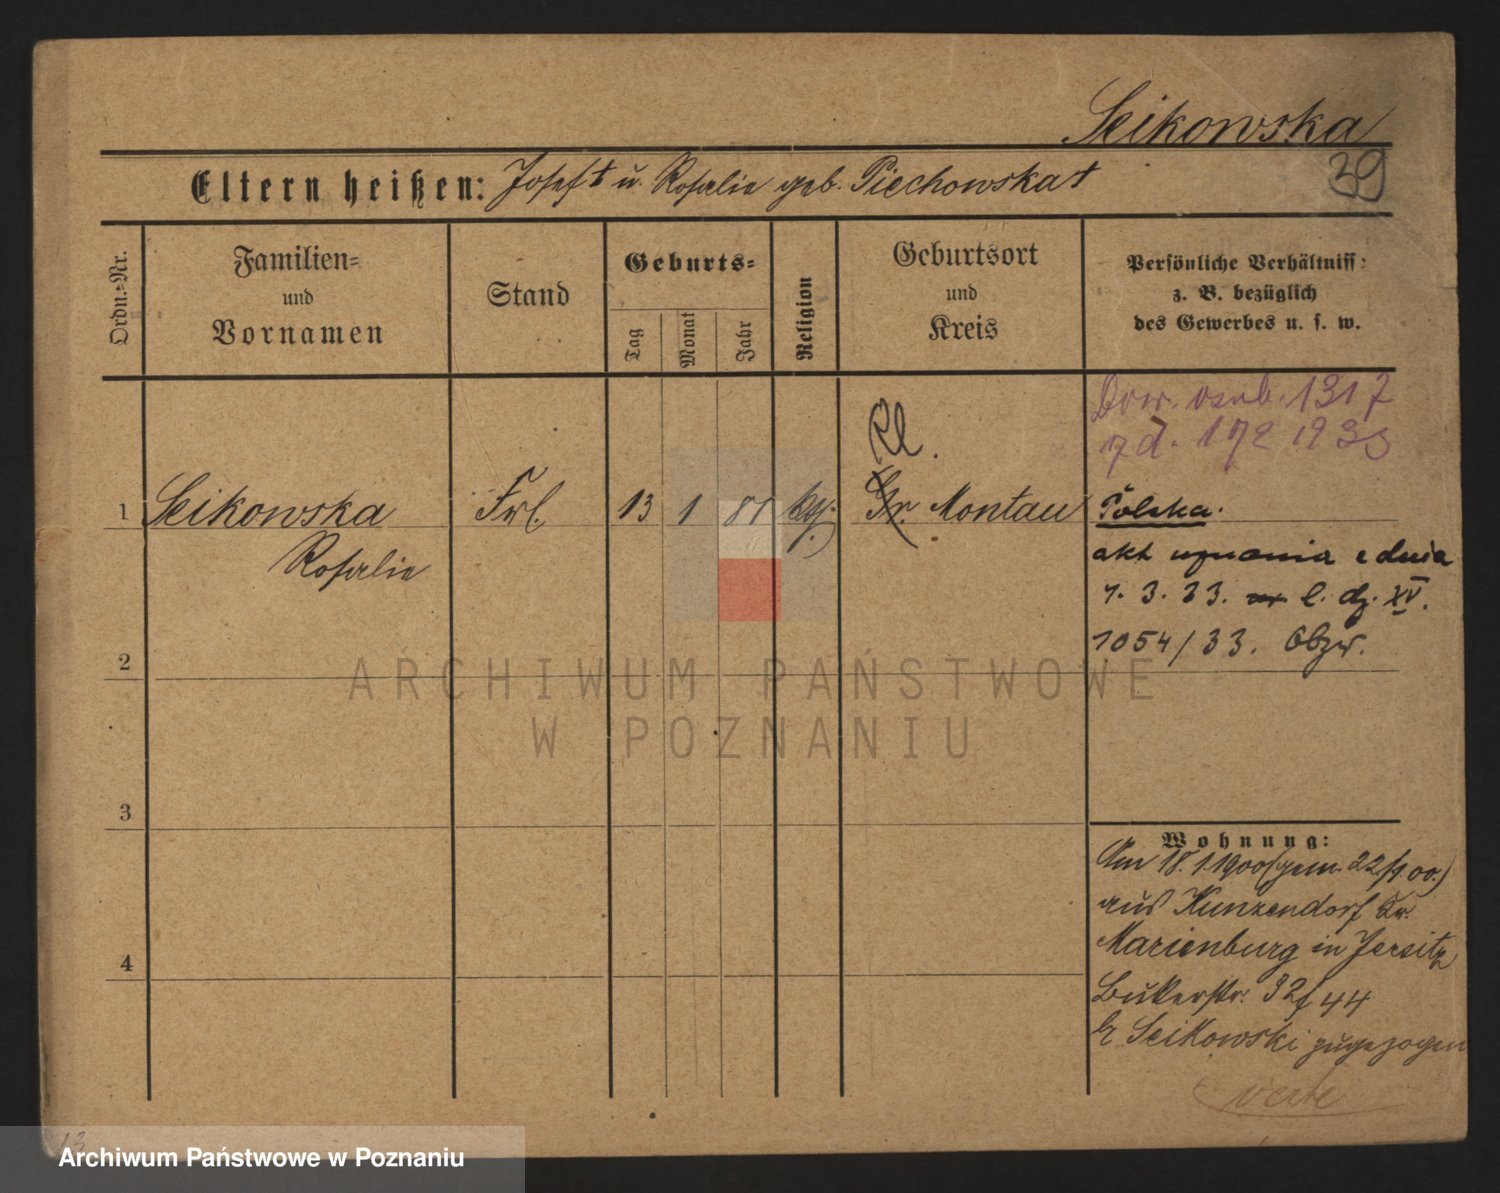 Seikowska
39
Eltern heißen: Josef † u. Rosalie geb. Piechowska †
Ordn.-Nr.
Familien-
und
Vornamen
Stand
Geburts-
Tag
Monat
Jahr
Religion
Geburtsort
und
Kreis
Persönliche Verhältniss:
z. B. bezüglich
des Gewerbes u. s. w.
Dow. osob. 1317
z d. 172 1933
Kl.
1 Seikowska Frl. 13 1 81 kg. Gr. Montau Polska.
Rosalie
akt uznania z dnia
7. 3. 33. l. dz. XV.
1054/33. Obzw.
2
3
4
Wohnung:
Am 18.1.1900 (gem. 22/1.00.)
aus Kunzendorf Kr.
Marienburg in Jersitz
Bukerstr. 32 44
b Seikowski zugezogen
verte
13
ARCHIWUM PAŃSTWOWE
W POZNANIU
Archiwum Państwowe w Poznaniu